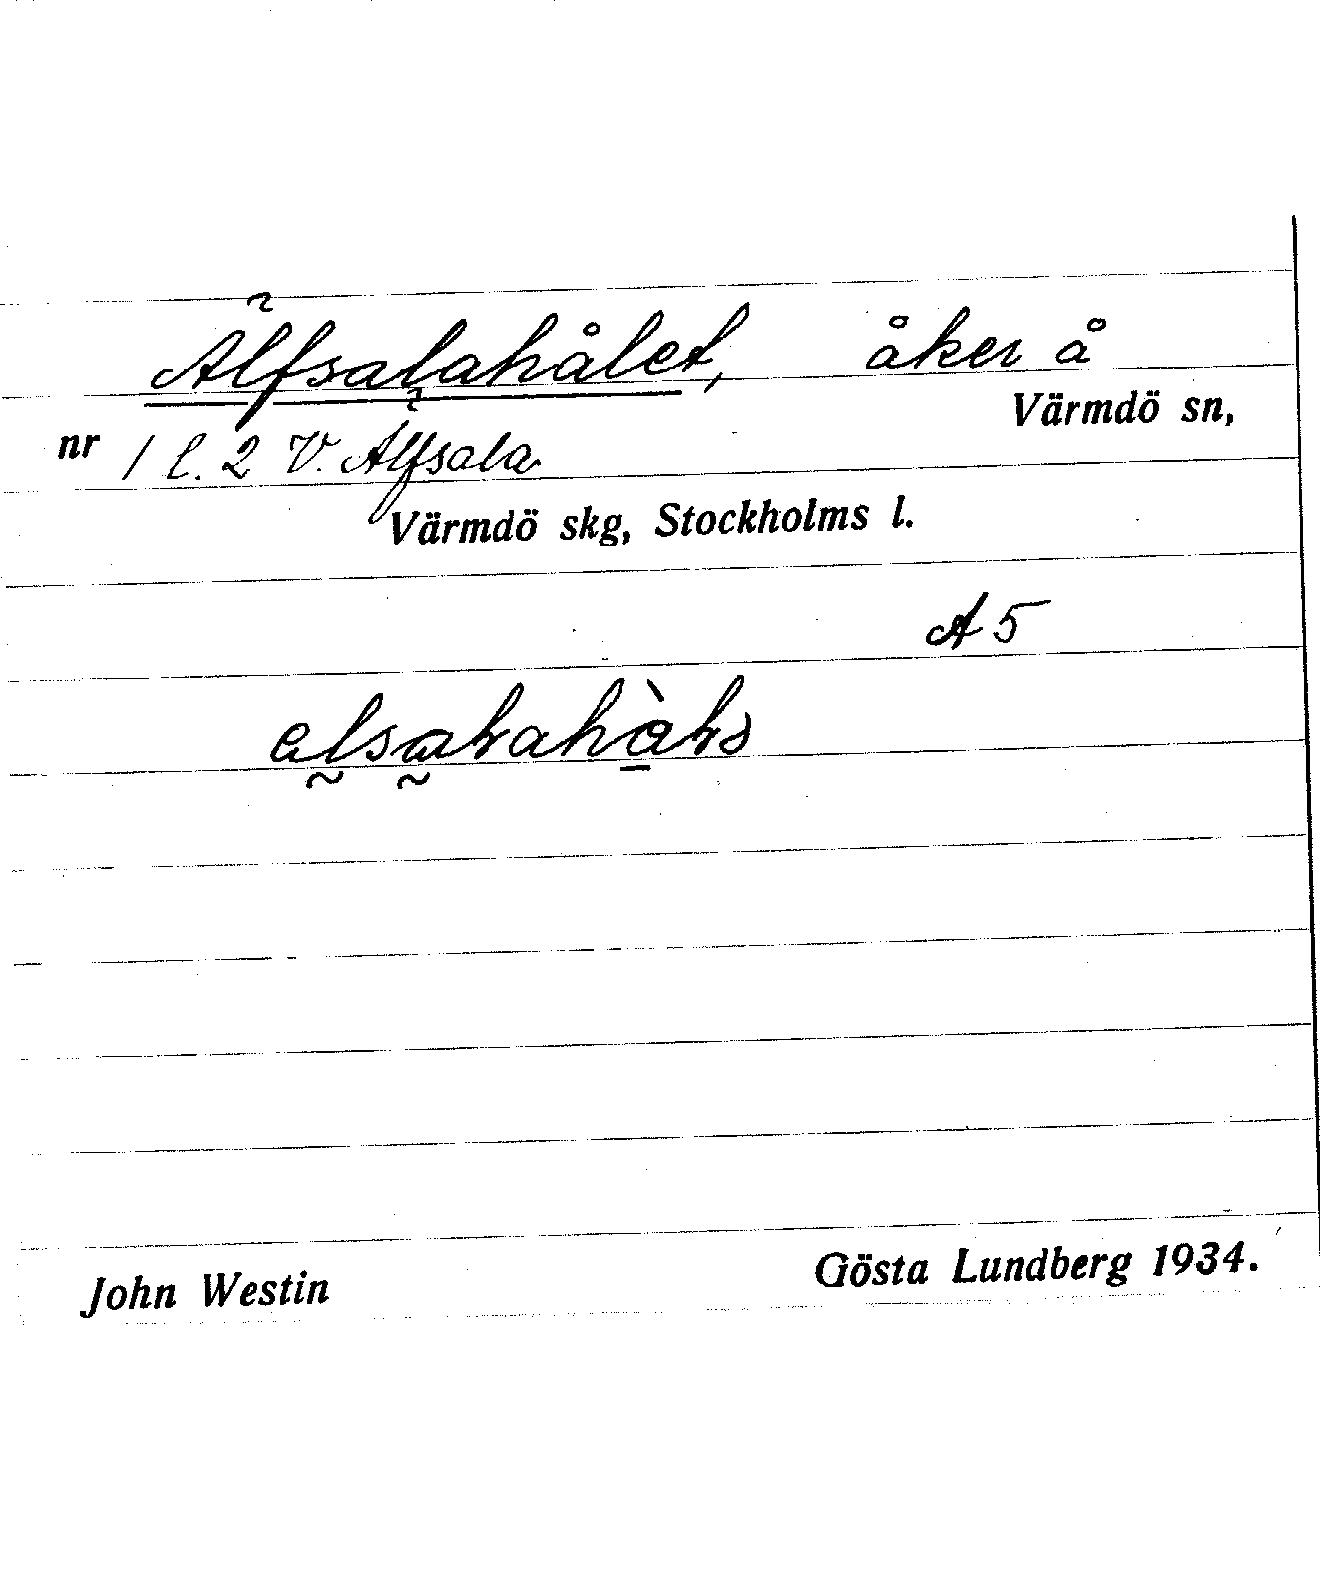 Älfsalahålet, åker å
Värmdö sn,
nr 1 l. 2 V. Älfsala
Värmdö skg, Stockholms l.
A 5
John Westin
Gösta Lundberg 1934.